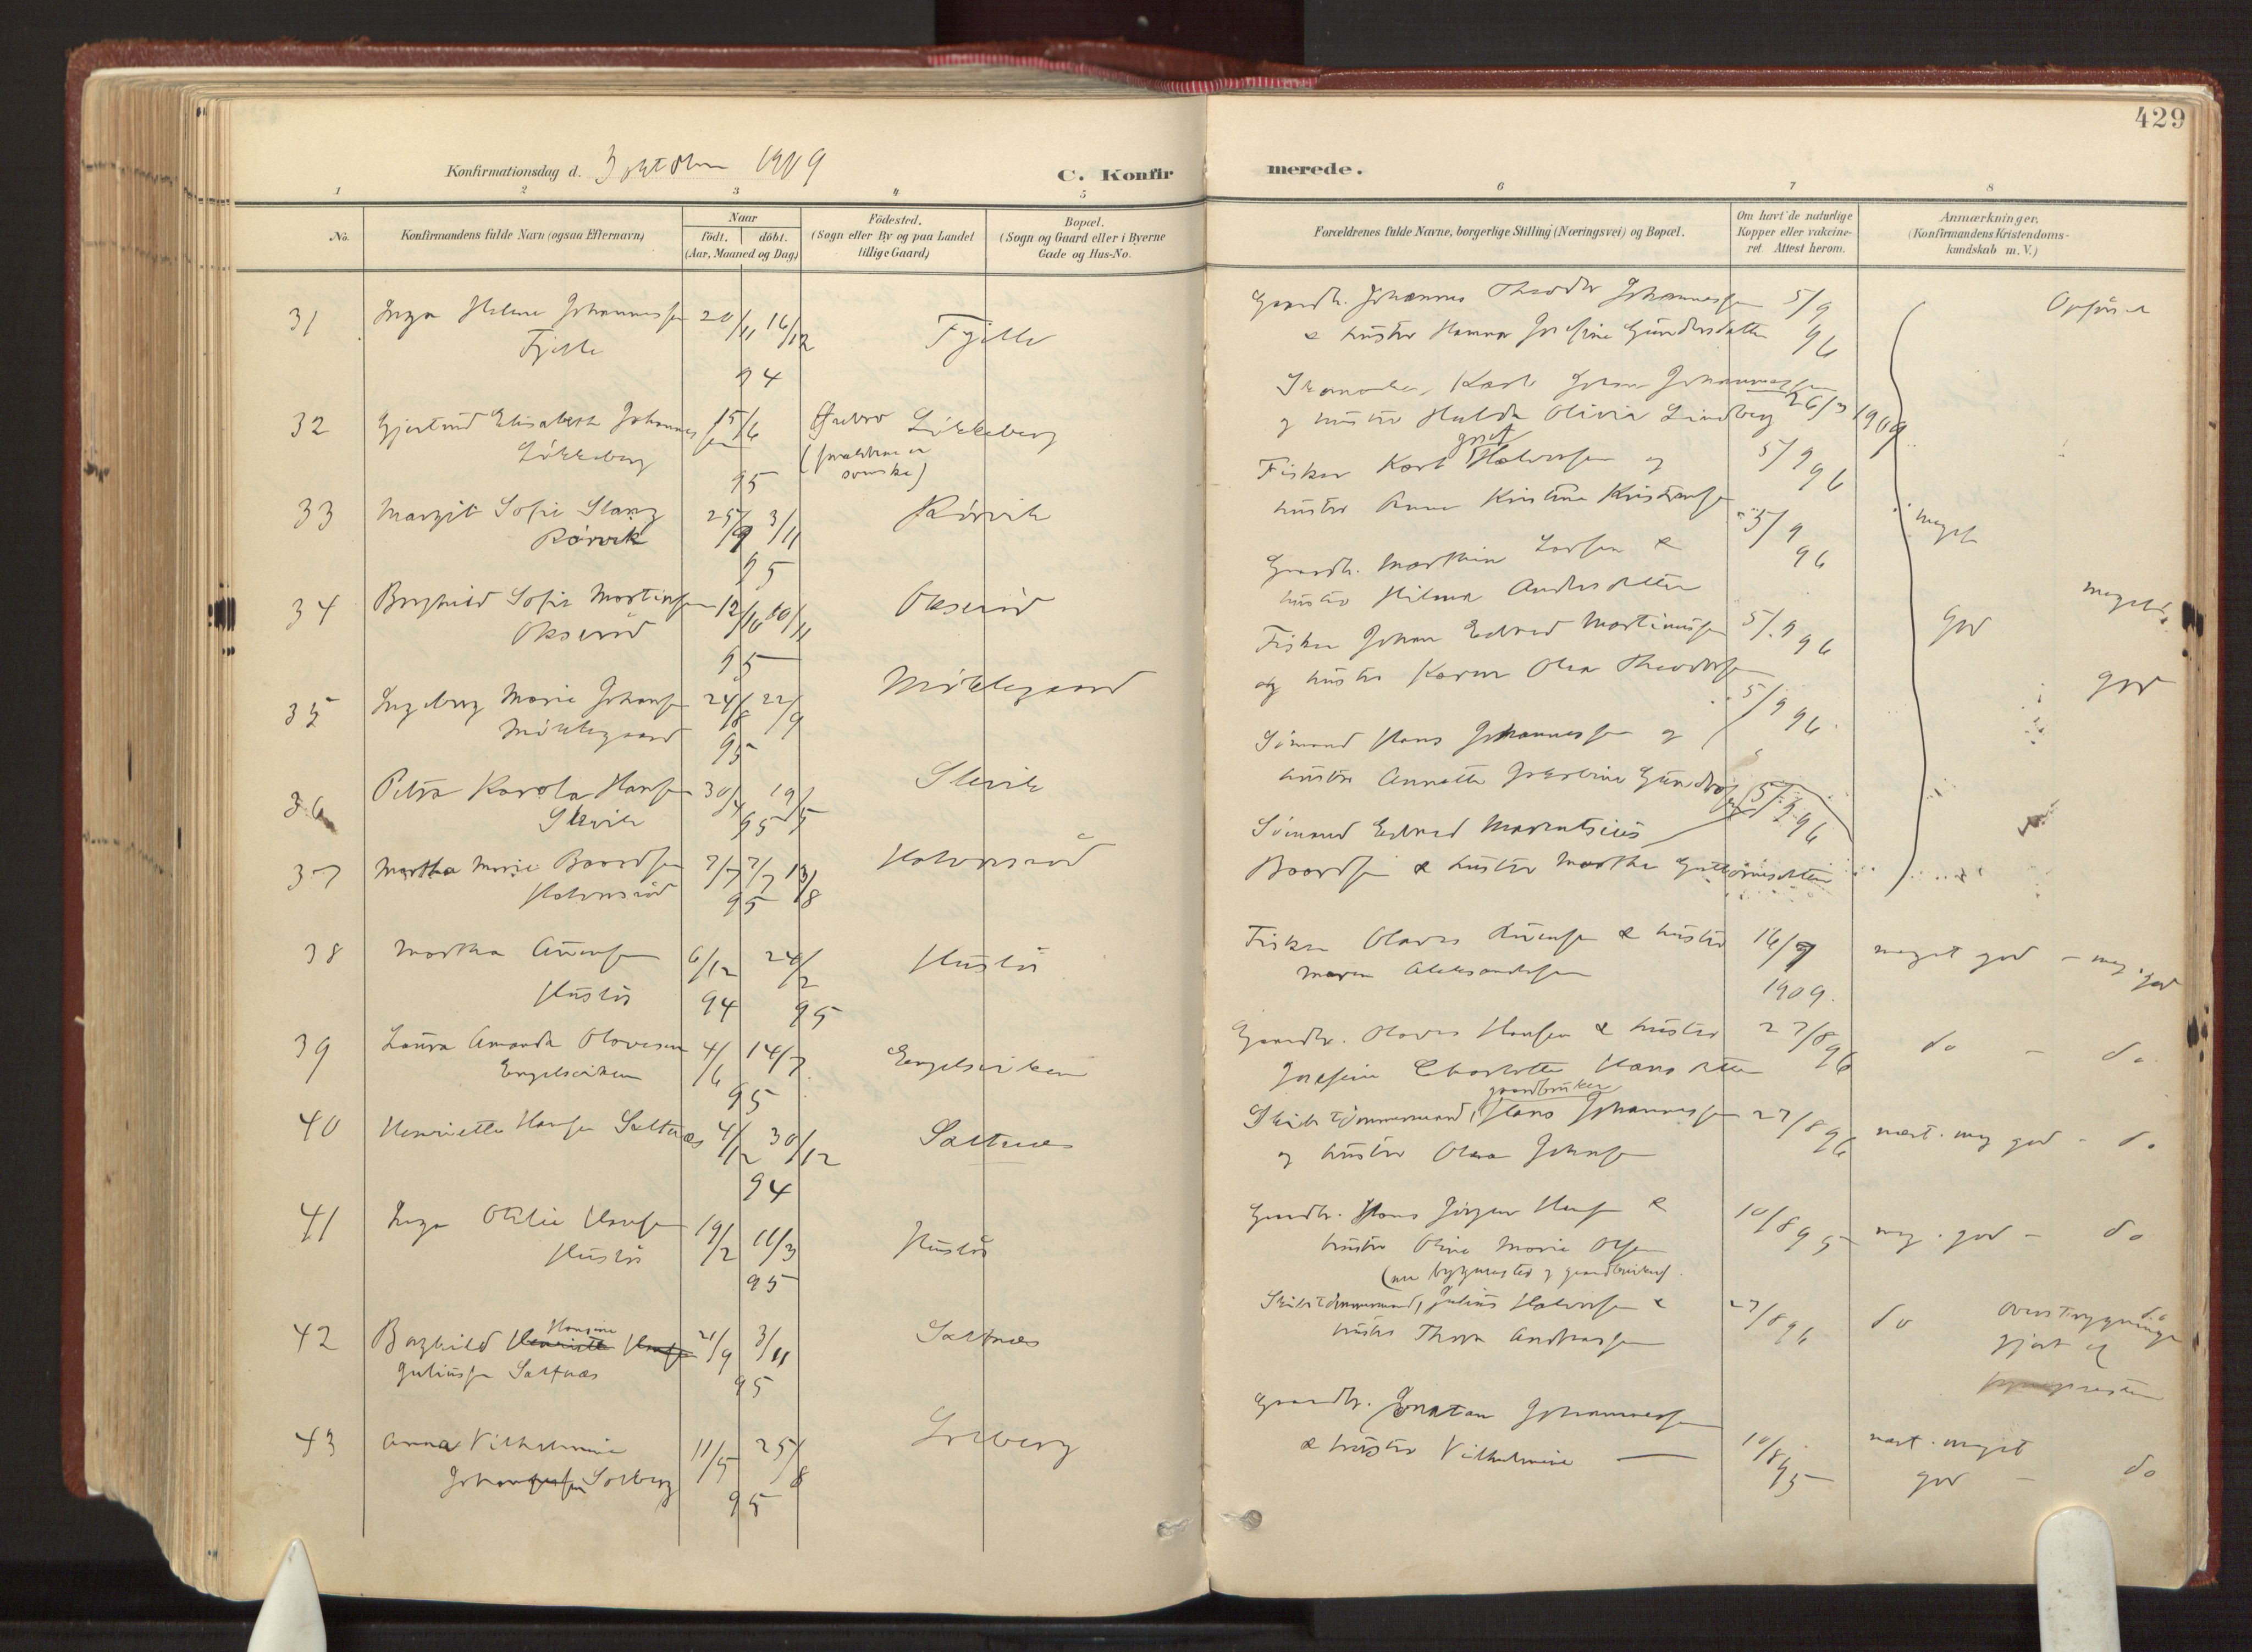 429
Konfirmationsdag d. 3 oktober 1909
C. Konfirmerede.
1 2 3 4 5 6 7 8
No.
Konfirmandens fulde Navn (ogsaa Efternavn)
Naar
født. døbt.
(Aar, Maaned og Dag)
Fødested.
(Sogn eller By og paa Landet
tillige Gaard)
Bopæl.
(Sogn og Gaard eller i Byerne
Gade og Hus-No.
Forældrenes fulde Navne, borgerlige Stilling (Næringsvei) og Bopæl.
Om havt de naturlige
Kopper eller vakcine-
ret. Attest herom.
Anmærkninger.
(Konfirmandens Kristendoms-
kundskab m. V.)
31 Inga Helene Johannessen 20/11 16/12 Fjelle
Fjelle
94
Gaardbr. Johannes Theodor Johannessen 5/9
& hustru Hanna Josefine Gundersdatter 96
32 Gjertrud Elisabeth Johannes 15/6 Ørebro Løkkeberg
sen
Løkkeberg (forældrene er
svenske)
95
Karl Johan Johannessen
og hustru Hulda Olivia Lindberg 26/3 1909
33 Margit Sofie Stang 25/9 3/11 Rørvik
Rørvik
95
Fisker Karl Halvorsen og 5/9 96
hustru Anna Kristine Kristiansen
meget
34 Borghild Sofie Martinsen 12/10 10/11 Økserød
Økserød
95
Gaardb. Marthin Larsen & 5/9 96
hustru Hilma Andersdatter
god meget
35 Ingeborg Marie Johansen 24/8 22/9 Mörkegaard
Mörkegaard
95
Fisker Johan Edvard Martinussen 5/9 96
og hustru Karen Olea Theodorsen
god
36 Petra Karola Hansen 30/4 19/5 Slevik
Slevik 95
Sömand Hans Johannessen og 5/9 96
hustru Annette Josefine Gundersen
37 Martha Marie Baardsen 7/7 13/8 Halvorsröd
Halvorsröd 95
Sömand Edvard Marentsius 5/9 96
Baardsen & hustru Marthe Guttormsdatter
38 Martha Arnesen 6/12 24/2 Huslö
Huslö 94 95
Fisker Olaves Arnesen & hustru 16/9
Maren Aleksandersen 1909.
meget god - meg. god
39 Laura Amanda Olavesen 4/6 14/7 Engelsviken
Engelsviken
95
Gaardbr. Olaves Hansen & hustru 27/8 96
Josefine Charlotte Hansdatter
do - do
40 Henriette Hansen Saltnæs 4/12 30/12 Saltnæs
94
gaardbruker
Skibstömmermand, Hans Johannessen 27/8 96
og hustru Olava Johnsen
næst. meg god - do
41 Inga Otilie Hansen 19/2 11/3 Huslö
Huslö
95
Gaardbr. Hans Jörgen Hansen & 10/8 95
hustru Oline Marie Olsen
meg. god - do
(nu bygmester og gaardbruker)
42 Borghild Henriette Hansen 21/9 3/11 Saltnæs
Hansine
Juliussen Saltnæs
95
Skibstömmermand, Julius Halvorsen & 27/8 96
hustru Thora Andreassen
do do
overstrygninger
gjort af
sognepresten
43 Anna Vilhelmine 11/5 25/8 Solberg
Johannessen Solberg
95
Gaardbr. Jonatan Johannessen
& hustru Vilhelmine — 10/8 95
næst. meget
god - do